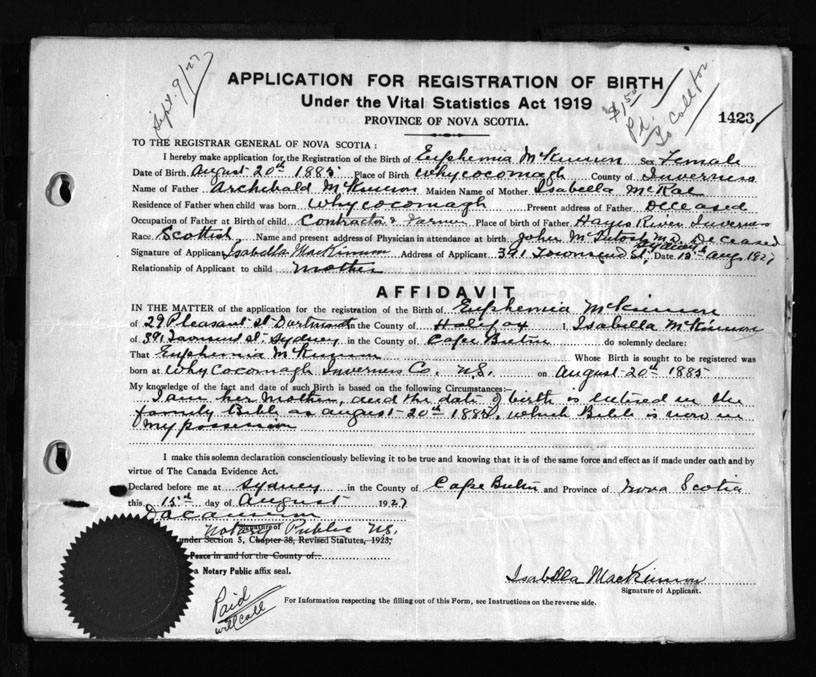 Sept. 9/27
APPLICATION FOR REGISTRATION OF BIRTH
Under the Vital Statistics Act 1919
PROVINCE OF NOVA SCOTIA.
$1.50
Pd.
To Call for
1423
TO THE REGISTRAR GENERAL OF NOVA SCOTIA :
I hereby make application for the Registration of the Birth of Euphemia McKinnon Sex Female
Date of Birth August 20th 1885 Place of Birth Whycocomagh County of Inverness
Name of Father Archibald McKinnon Maiden Name of Mother Isabella McRae
Residence of Father when child was born Whycocomagh Present address of Father Deceased
Occupation of Father at Birth of child Contractor & Farmer Place of birth of Father Hays River Inverness
Race Scottish Name and present address of Physician in attendance at birth John McIntosh M.D. Deceased
Signature of Applicant Isabella MacKinnon Address of Applicant 391 Townsend St. Sydney Date 15th Aug. 1927
Relationship of Applicant to child mother
AFFIDAVIT
IN THE MATTER of the application for the registration of the Birth of Euphemia McKinnon
of 29 Pleasant St Dartmouth in the County of Halifax I, Isabella McKinnon
of 391 Townsend St; Sydney in the County of Cape Breton do solemnly declare:
That Euphemia McKinnon Whose Birth is sought to be registered was
born at Whycocomagh Inverness Co. N.S. on August 20th 1885
My knowledge of the fact and date of such Birth is based on the following Circumstances:
I am her Mother, and the date of birth is entered in the
family Bible as August 20th 1885, which Bible is now in
my possession
I make this solemn declaration conscientiously believing it to be true and knowing that it is of the same force and effect as if made under oath and by
virtue of The Canada Evidence Act.
Declared before me at Sydney in the County of Cape Breton and Province of Nova Scotia
this 15th day of August 1927
D A Cameron
Signature of
Notary Public N.S.
under Section 5, Chapter 38, Revised Statutes, 1923;
Peace in and for the County of
a Notary Public affix seal.
Isabella MacKinnon
Signature of Applicant.
Paid
will call
For Information respecting the filling out of this Form, see Instructions on the reverse side.